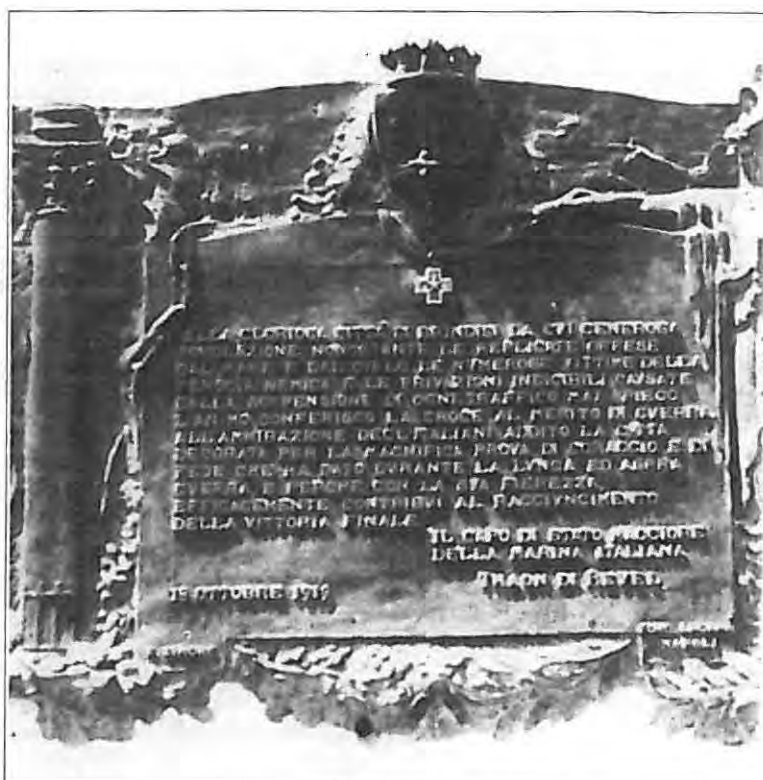 ALLA GLORIOSA CITTÀ DI BRINDISI LA CUI GENEROSA
POPOLAZIONE NONOSTANTE LE REPLICATE OFFESE
DAL MARE E DAL CIELO LE NUMEROSE VITTIME DELLA
FEROCIA NEMICA E LE PRIVAZIONI INDICIBILI CAUSATE
DALLA SOSPENSIONE DI OGNI TRAFFICO MAI PIEGÒ
L'ANIMO CONFERISCO LA CROCE AL MERITO DI GVERRA
ALL'AMMIRAZIONE DEGL'ITALIANI ADDITO LA CITTÀ
DECORATA PER LA MAGNIFICA PROVA DI CORAGGIO E DI
FEDE CHE HA DATO DVRANTE LA LVNGA ED ASPRA
GVERRA E PERCHÈ CON LA SVA FIEREZZA
EFFICACEMENTE CONTRIBVÌ AL RAGGIVNGIMENTO
DELLA VITTORIA FINALE
IL CAPO DI STATO MAGGIORE
DELLA MARINA ITALIANA
THAON DI REVEL
19 OTTOBRE 1919
NAPOLI